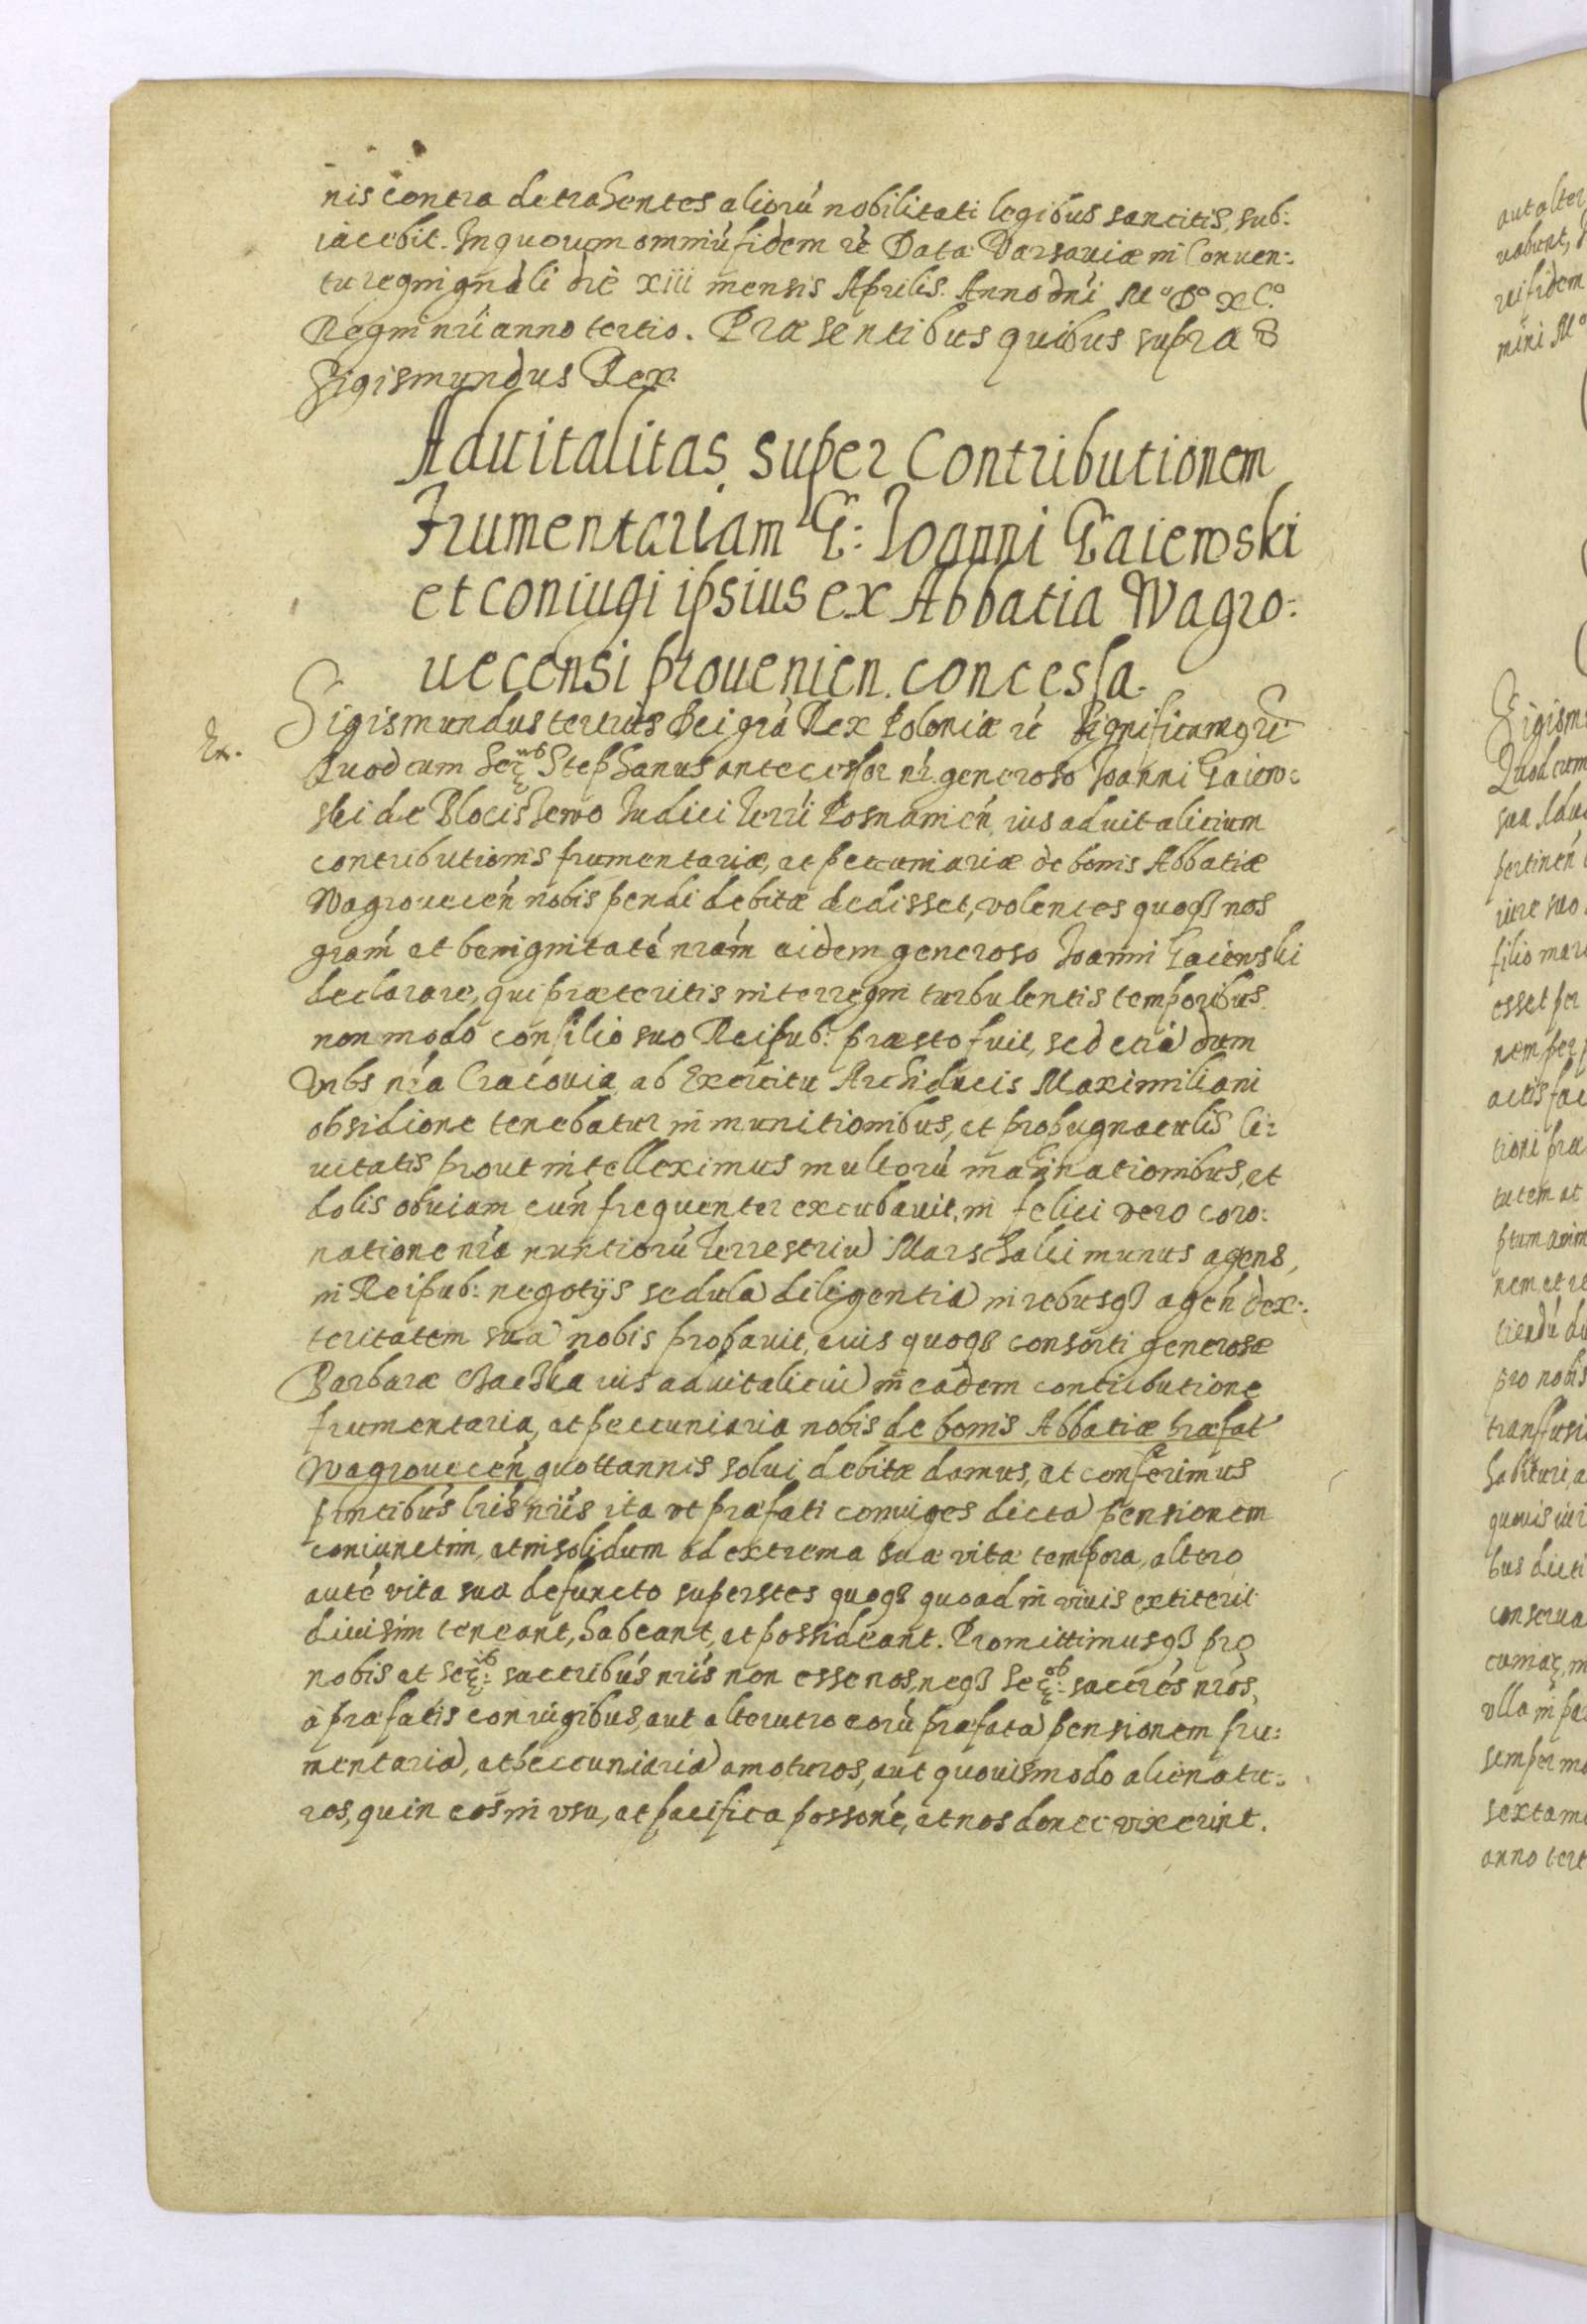 nis contra detrahentes aliorũ nobilitati legibus sancitis, sub:
iacebit. In quorum omniũ fidem rė Data Varsaviæ in Conven:
tu regni gnáli diė xiii mensis Aprilis. Anno dńi Mº Dº xCº
Regni nři anno tertio. Præsentibus quibus supra
Sigismundus Rex.
Aduitalitas super Contributionem
Frumentariam G: Ioanni Gaiewski
et coniugi ipsius ex Abbatia Wagro:
uecensi prouenien. concessa.
Sigismundus tertius Dei grã Rex Poloniæ rė Significamus
Quod cum Ser Stephanus antecessor nr̃ generoso Ioanni Gaiew:
ski de Blociszewo Iudici Terræ Posnanień, ius aduitalitium
contributionis frumentariæ, et pecuniariæ de bonis Abbatiæ
Wagroueceń nobis pendi debitæ dedisset, volentes quoqȝ nos
gram̃ et benignitatẽ nram̃ eidem generoso Ioanni Gaiewski
declarare, qui præteritis interregni turbulentis temporibus
non modo consilio suo Reipub: præsto fuit, sed etiã dum
Vrbs nr̃a Cracouia ab Exercitu Archiducis Maximiliani
obsidione tenebatur in munitionibus, et propugnaculis Ci:
uitatis prout intelleximus multorũ machinationibus, et
dolis obuiam euń frequenter excubauit, in felici vero coro:
natione nr̃a nuntiorũ Terrestriũ Marschalci munus agens,
in Reipub: negotijs sedulã diligentiã in rebusqȝ ageń dex:
teritatem suã nobis probauit, euis quoqȝ consorti generosæ
Barbaræ ius aduitalitiũ in eadem contributione
frumentaria, et peccuniaria nobis de bonis Abbatiæ præfat
Wagroueceń quottannis solui debitæ damus, et conferimus
pntibus lrı̃s nrı̃s ita vt præfati coniuges dictã pensionem
coniunctim, et in solidum ad extrema suæ vitæ tempora, altero
autẽ vita sua defuncto superstes quoqȝ quoad in viuis extiterit
diuisim teneant, habeant, et possideant. Promittimusqȝ pro
nobis et Ser: succribus nrı̃s non esse nos, neqȝ Ser: succrẽs nr̃os,
à præfatis coniugibus, aut alterutro eorũ præfatã pensionem fru:
mentariã, et peccuniariã amoturos, aut quouismodo alienatu:
ros, quin eos in vsu, et pacifica possonẽ, et nos donec vixerint.